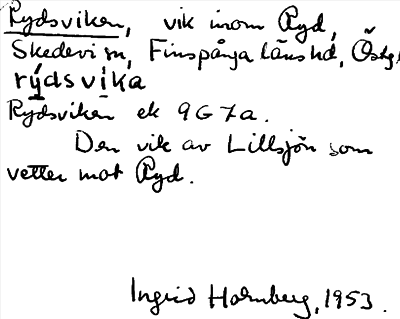 Rydsviken, vik inom Ryd,
Skedevi sn, Finspånga läns hd, Östg.
rýdsvika
Rydsviken ek 9G7a.
Den vik av Lillsjön som
vetter mot Ryd.
Ingrid Holmberg, 1953.